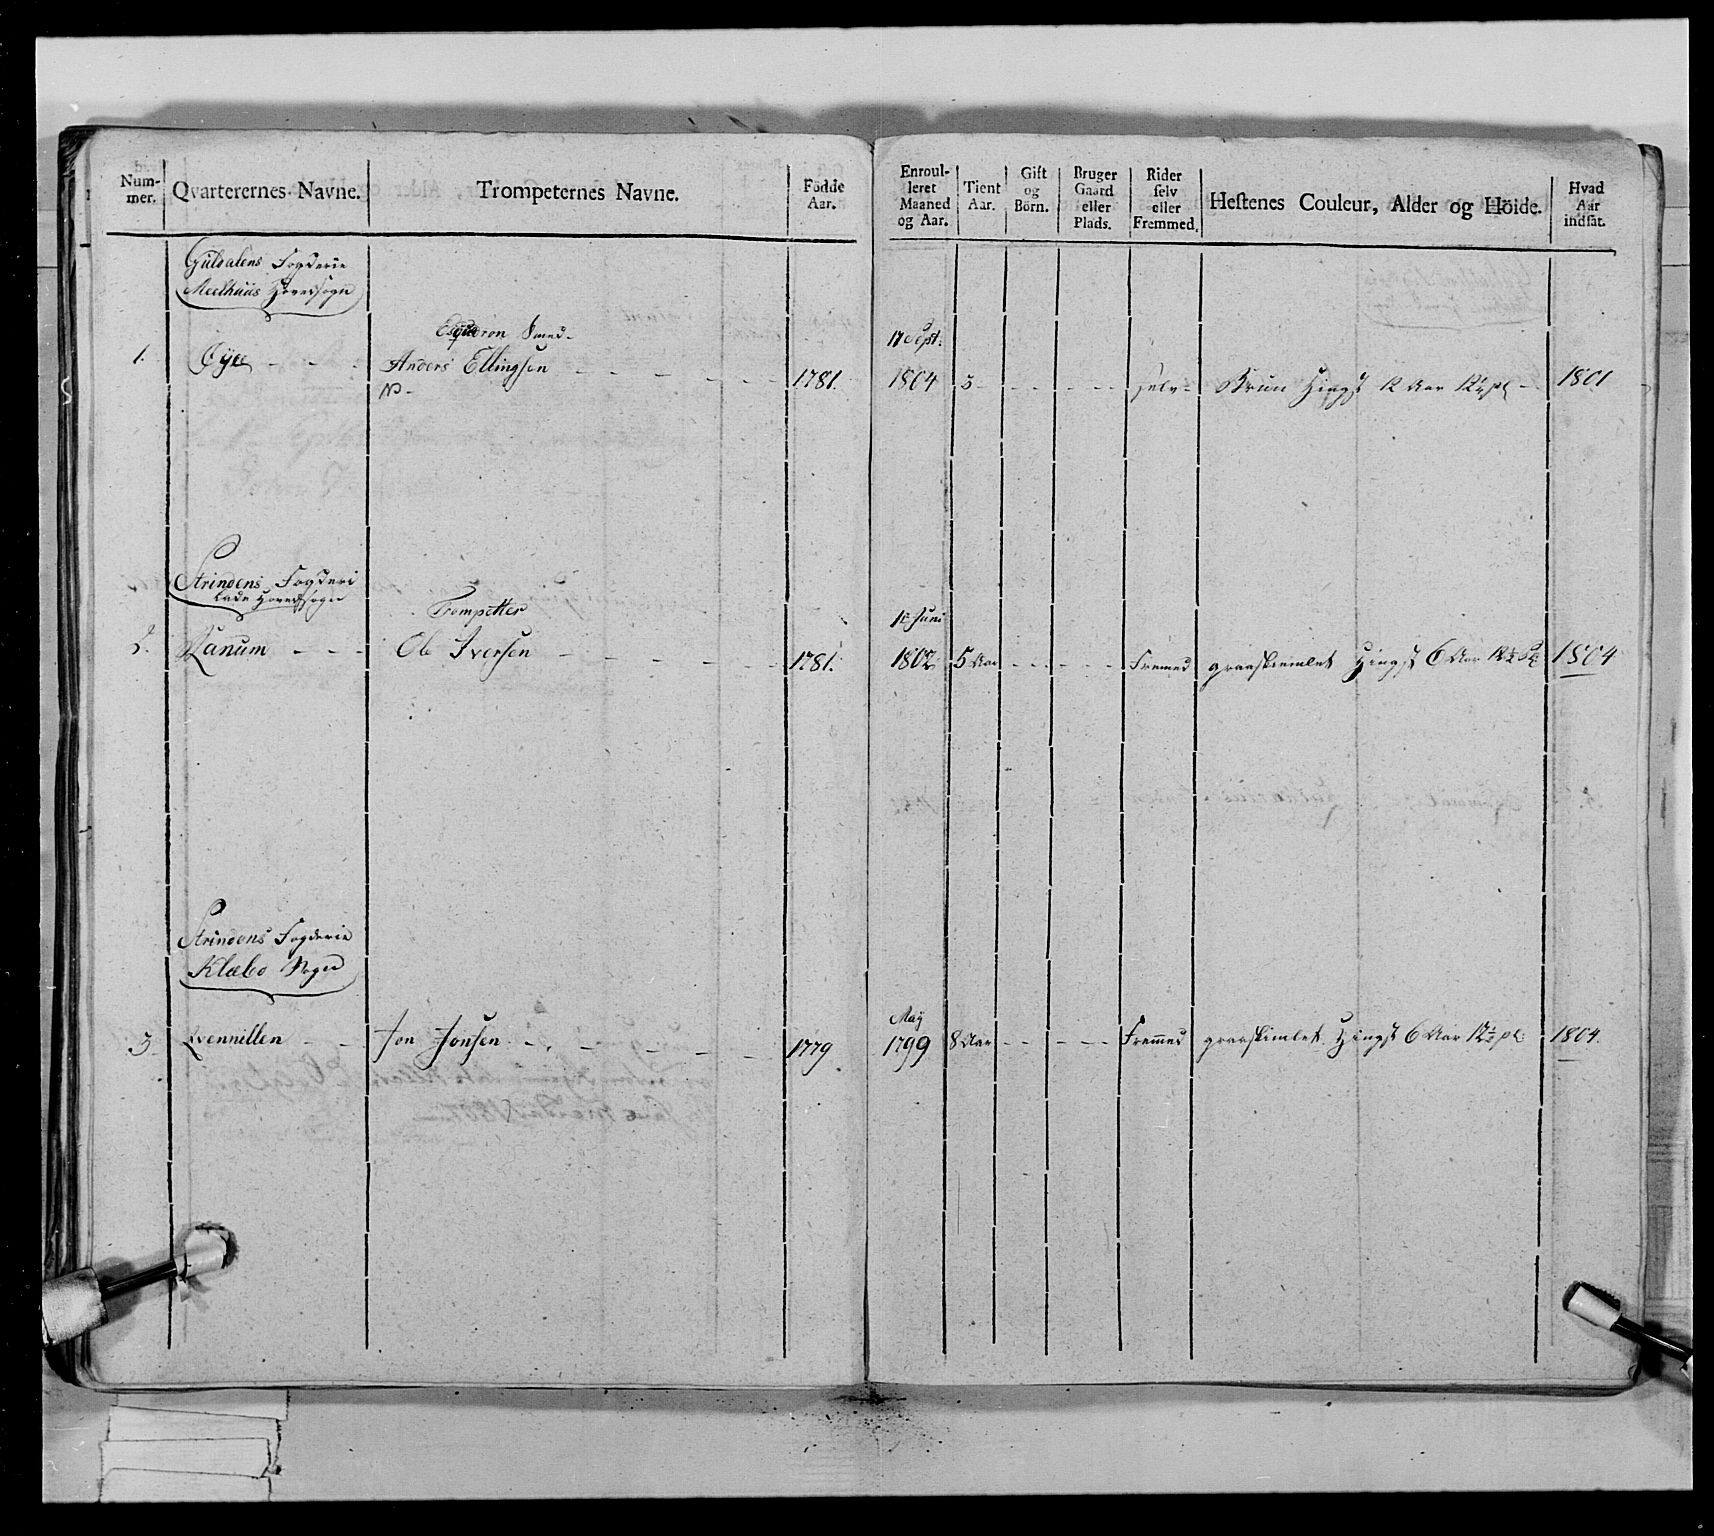 Num-
mer.
Qvarterernes Navne.
Trompeternes Navne.
Födde
Aar.
Enroul-
leret
Maaned
og Aar.
Tient
Aar.
Gift
og
Börn.
Bruger
Gaard
eller
Plads.
Rider
selv
eller
Fremmed.
Hestenes Couleur, Alder og Höide.
Hvad
Aar
indsat.
Guldalens Fogderie
Meelhuus Hovedsogn
Esquadron Smed
17 Sept:
1. Øye - - - Anders Ellingsen - - - - - 1781. 1804 3 - - - - - selv - Brun Hingst 12 Aar 12 - 1801
Strindens Fogderi
Lade Hovedsogn
Trompetter
Juni
2. Ranum - - - Ole Iversen - - - - - 1781. 1802 5 Aar - - - - Fremed graaskimlet Hingst 6 Aar 12½ 1804
Strindens Fogderie
Klæbo Sogn
May
3. - - Jon Jonsen - - - - - 1779. 1799 8 Aar - - - - Fremmed graaskimlet Hingst 6 Aar 12½ pl: 1804.